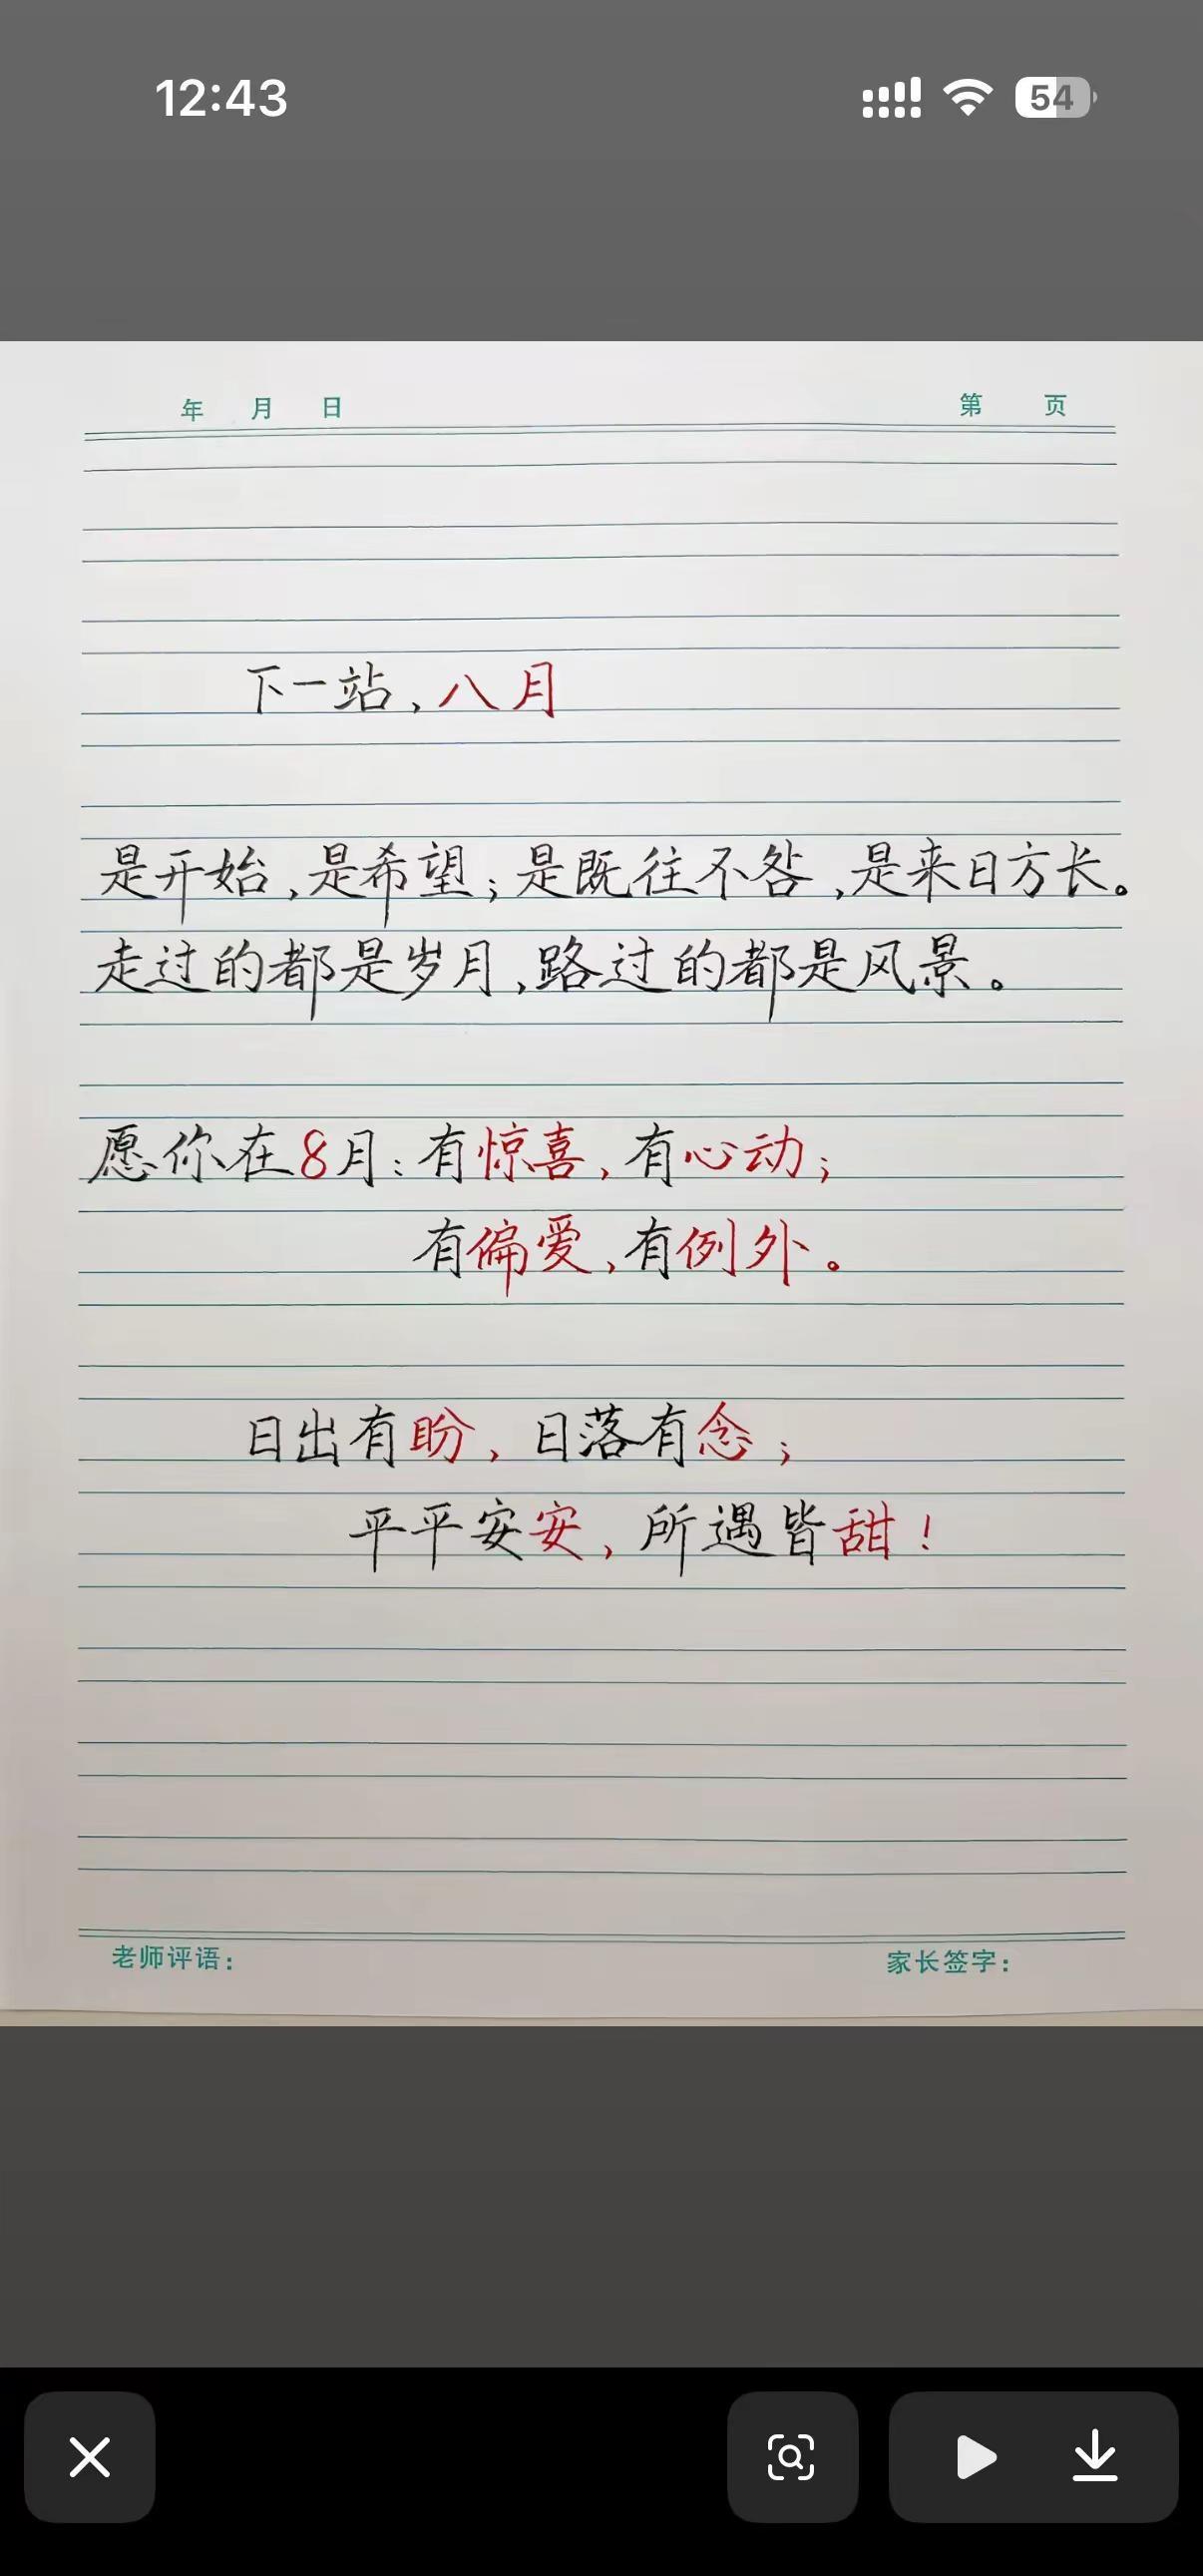 12:43
54
年 月 日 第 页
下一站,八月
是开始,是希望;是既往不咎,是来日方长。
走过的都是岁月,路过的都是风景。
愿你在8月:有惊喜,有心动;
有偏爱,有例外。
日出有盼,日落有念;
平平安安,所遇皆甜!
老师评语: 家长签字: